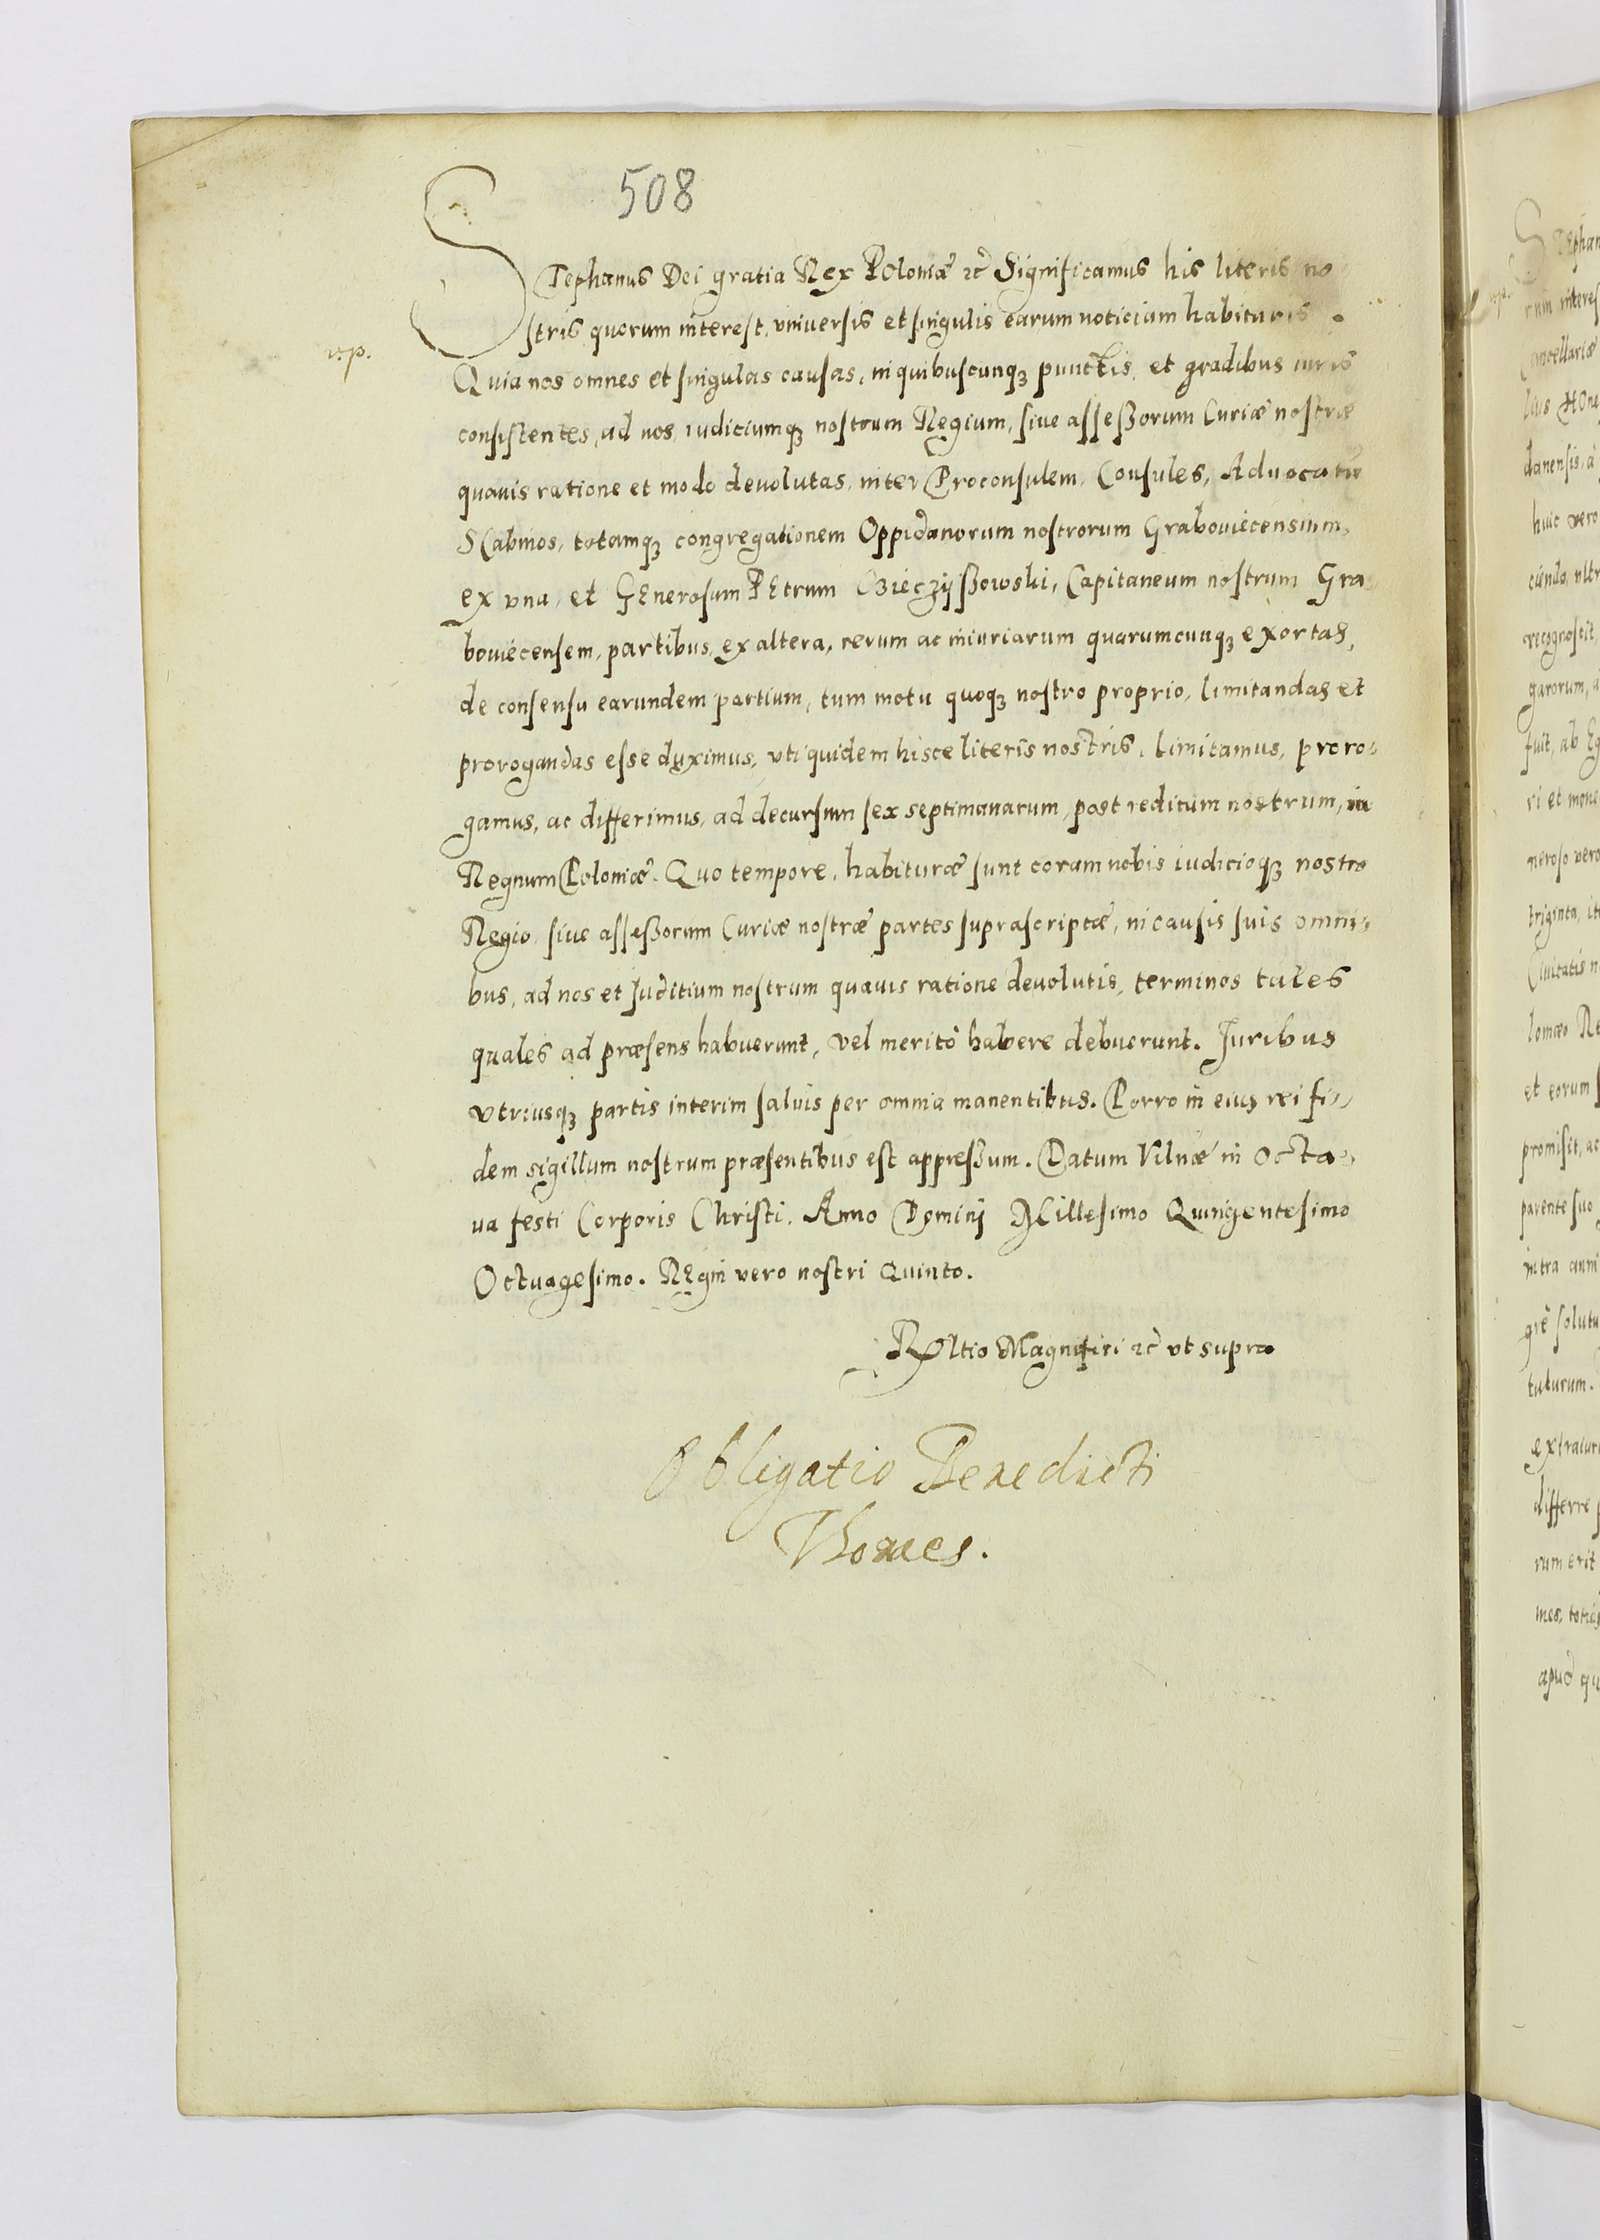 508
Stephanus Dei gratia Rex Poloniæ etc Significamus his literis no
stris quorum interest, vniuersis et singulis earum noticiam habituris.
v.p.
Quia nos omnes et singulas causas, in quibuscunqȝ punctis et gradibus iuris
consistentes, ad nos iudiciumqȝ nostrum Regium, siue assessorum Curiæ nostræ
quauis ratione et modo deuolutas, inter Proconsulem, Consules, Aduocatū
Scabinos, totamqȝ congregationem Oppidanorum nostrorum Grabouiecensium,
ex vna, et GEnerosum PEtrum Capitaneum nostrum Gra
bouiecensem, partibus, ex altera, rerum ac iniuriarum quarumcunqȝ exortas,
de consensu earundem partium, tum motu quoqȝ nostro proprio, limitandas et
prorogandas esse duximus, vti quidem hisce literis nostris, limitamus, proro-
gamus, ac differimus, ad decursum sex septimanarum, post reditum nostrum, in
Regnum Poloniæ. Quo tempore, habituræ sunt coram nobis iudicioqȝ nostro
Regio, siue assessorum Curiæ nostræ partes suprascriptæ, in causis suis omni-
bus, ad nos et Juditium nostrum quauis ratione deuolutis, terminos tales
quales ad præsens habuerunt, vel meritò habere debuerunt. Juribus
vtriusqȝ partis interim saluis per omnia manentibus. Porro in eius rei fi-
dem sigillum nostrum præsentibus est appressum. Datum Vilnæ in Octa-
ua festi Corporis Christi. Anno Dominj Millesimo Quingentesimo
Octuagesimo. REgni vero nostri Quinto.
REltio Magnifici etc vt supra
Obligatio Benedicti